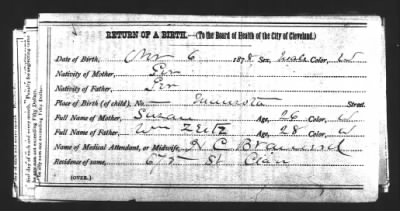 RETURN OF A BIRTH.—(To the Board of Health of the City of Cleveland.)
Date of Birth, Nov 6 1878 Sex, Male Color, W
Nativity of Mother, Ger
Nativity of Father, Ger
Place of Birth (of child), No. Street.
Full Name of Mother, Susan Age, 26 Color, W
Full Name of Father, Wm Zeitz Age, 28 Color, W
Name of Medical Attendant, or Midwife, H C Brainerd
Residence of same, 675 St Clair
(OVER.)